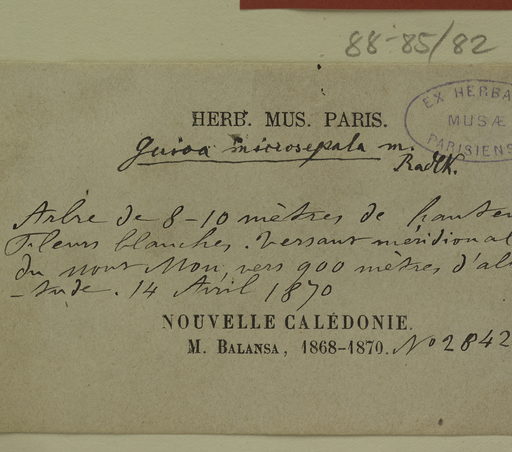 88-85/82
HERB. MUS. PARIS.
EX HERBA
MUSÆ
PARISIENS
Guioa microsepala m.
Radlk.
Arbre de 8-10 mètres de hauteu
Fleurs blanches. Versant méridional
du mont Mou, vers 900 mètres d'alti
-tude. 14 Avril 1870
NOUVELLE CALÉDONIE.
M. BALANSA, 1868-1870. No 2842